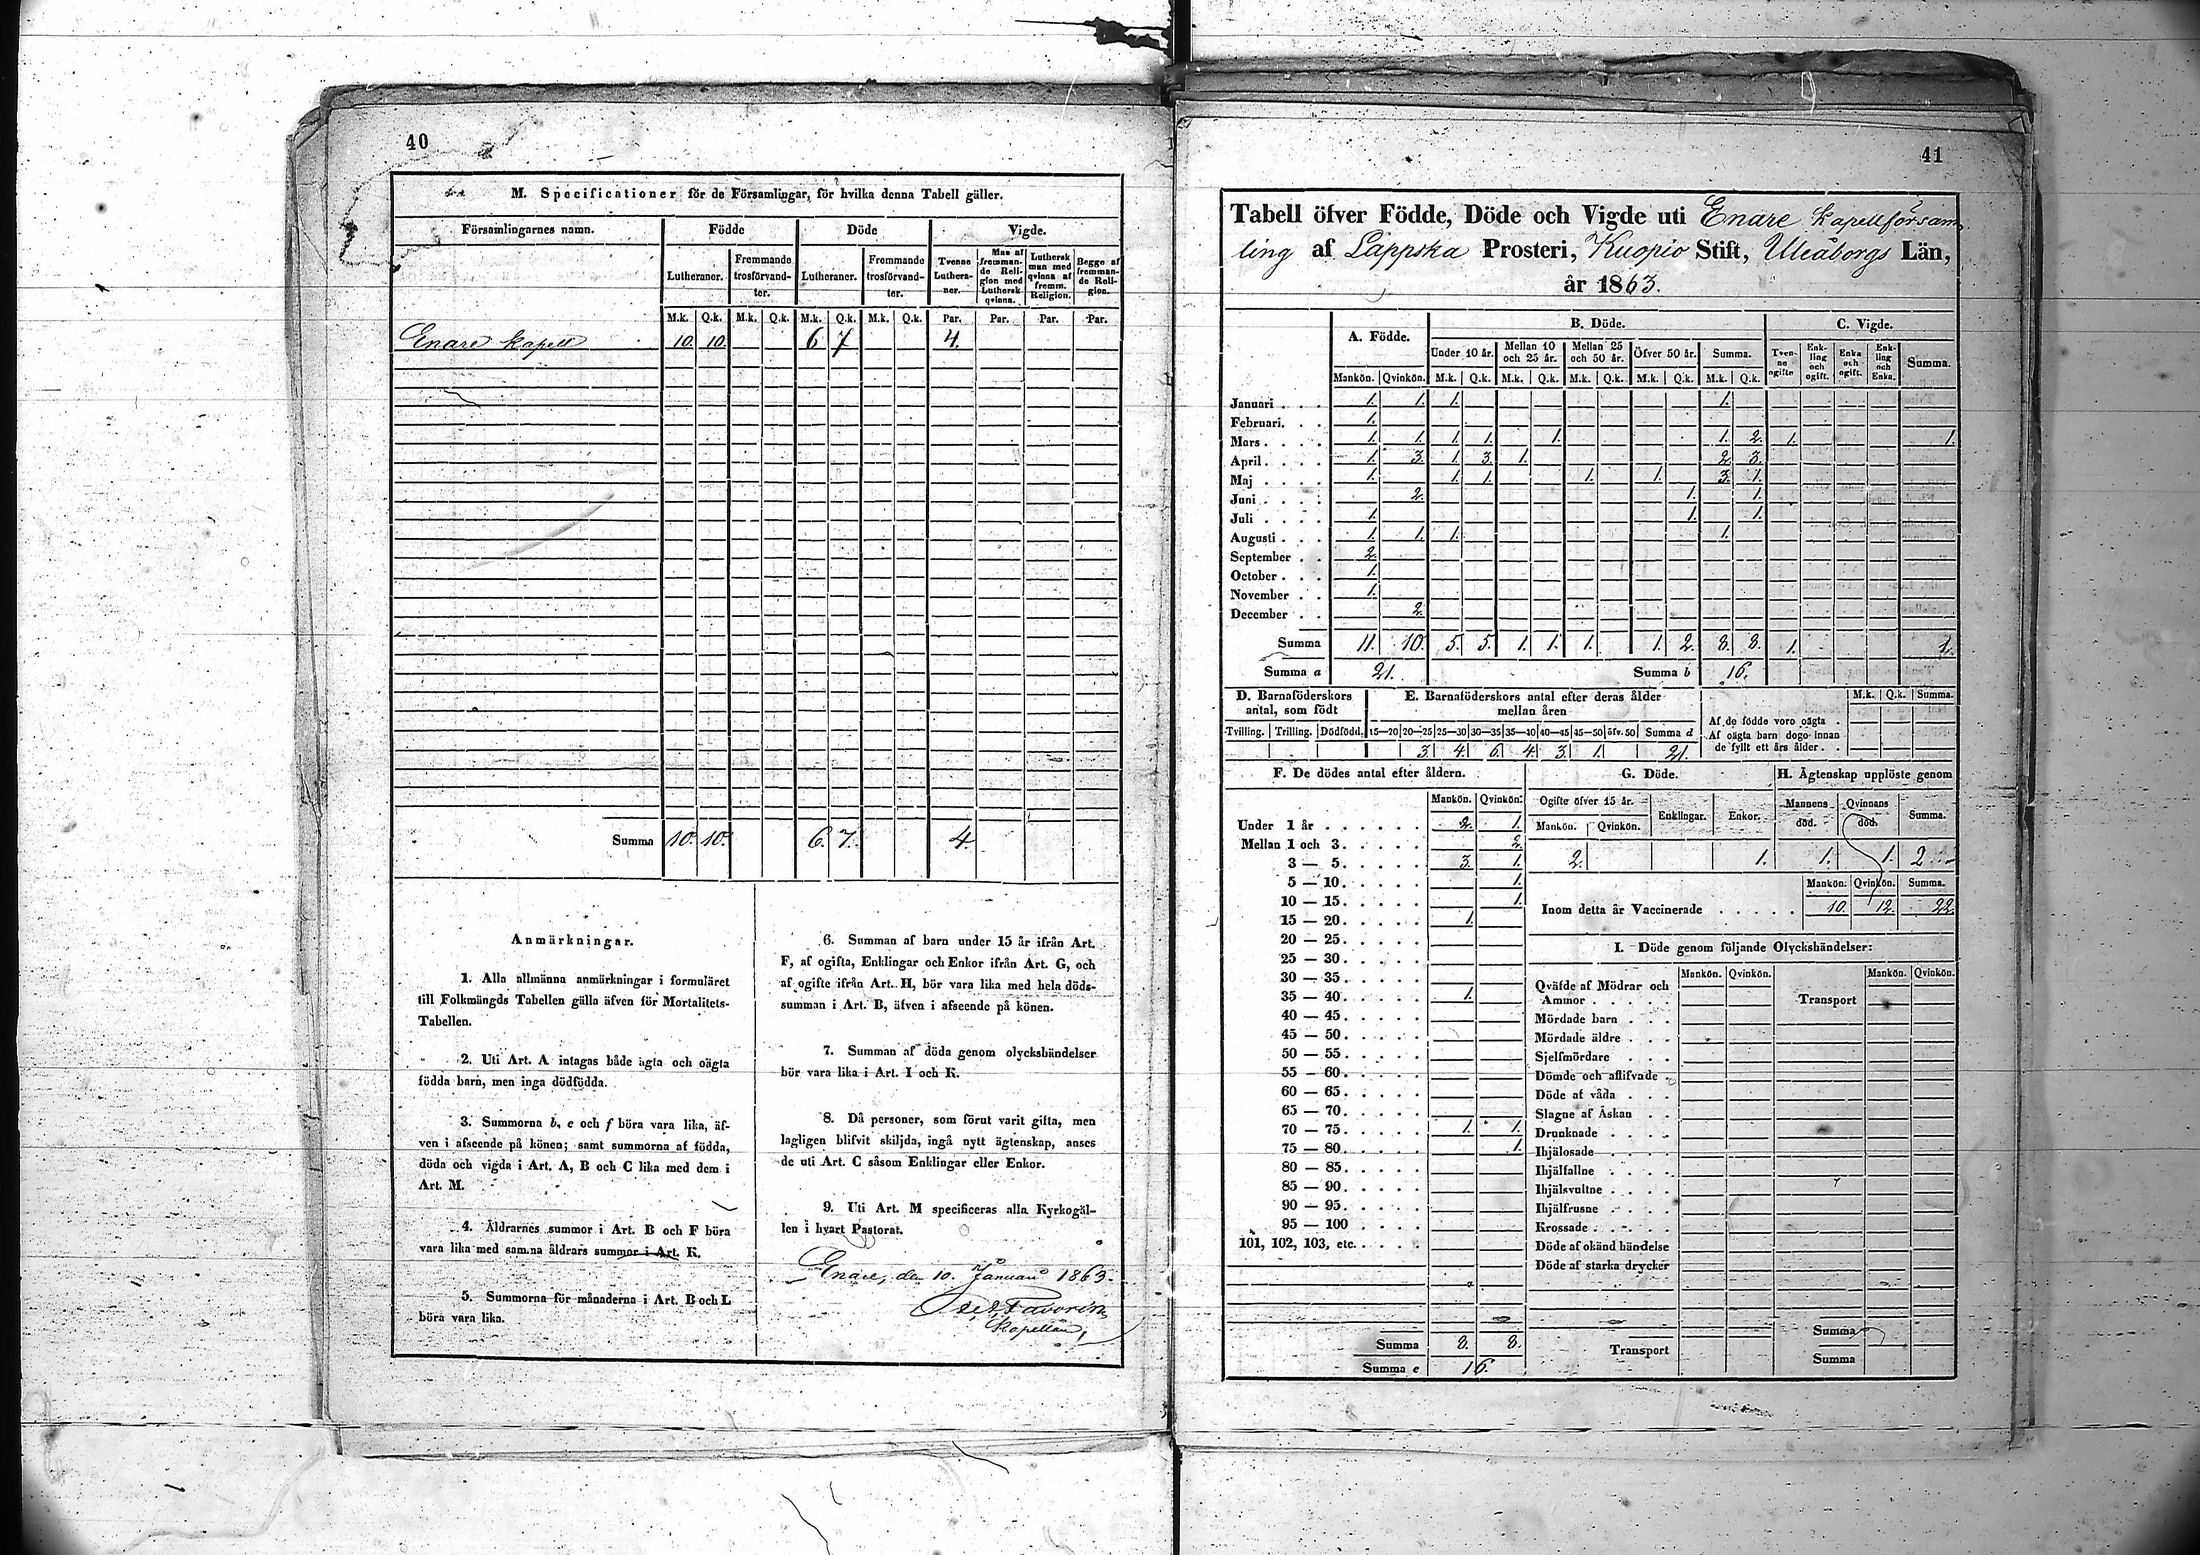 40
M. Specificationer för de Församlingar, för hvilka denna Tabell gäller.
Församlingarnes namn. Födde Döde Vigde.
Lutheraner. Fremmande trosförvandter. Lutheraner. Fremmande trosförvandter. Tvenne Lutheraner. Man af fremmande Religion med Luthersk qvinna. Luthersk man med qvinna af fremm. Religion. Begge af fremmande Religion.
M.k. Q.k. M.k. Q.k. M.k. Q.k. M.k. Q.k. Par. Par. Par. Par.
Enare kapell 10. 10. 6 7 4.
Summa 10. 10. 6. 7. 4.
Anmärkningar.
1. Alla allmänna anmärkningar i formuläret
till Folkmängds Tabellen gälla äfven för Mortalitets-
Tabellen.
2. Uti Art. A intagas både ägta och oägta
födda barn, men inga dödfödda.
3. Summorna b, e och f böra vara lika, äf-
ven i afseende på könen; samt summorna af födda,
döda och vigda i Art. A, B och C lika med dem i
Art. M.
4. Åldrarnes summor i Art. B och F böra
vara lika med samma åldrars summor i Art. K.
5. Summorna för månaderna i Art. B och L
böra vara lika.
6. Summan af barn under 15 år ifrån Art.
F, af ogifta, Enklingar och Enkor ifrån Art. G, och
af ogifte ifrån Art. H, bör vara lika med hela döds-
summan i Art. B, äfven i afseende på könen.
7. Summan af döda genom olyckshändelser
bör vara lika i Art. I och K.
8. Då personer, som förut varit gifta, men
lagligen blifvit skiljda, ingå nytt ägtenskap, anses
de uti Art. C såsom Enklingar eller Enkor.
9. Uti Art. M specificeras alla Kyrkogäl-
len i hvart Pastorat.
Enare, den 10. Januari 1863.
Kapellan,
41
Tabell öfver Födde, Döde och Vigde uti Enare kapellförsam-
ling af Lappska Prosteri, Kuopio Stift, Uleåborgs Län,
år 1863.
A. Födde. B. Döde. C. Vigde.
Under 10 år. Mellan 10 och 25 år. Mellan 25 och 50 år. Öfver 50 år. Summa. Tvenne ogifte Enkling och ogift. Enka och ogift. Enkling och Enka. Summa.
Mankön. Qvinkön. M.k. Q.k. M.k. Q.k. M.k. Q.k. M.k. Q.k. M.k. Q.k.
Januari . . . 1. 1. 1. 1.
Februari. . . 1.
Mars . . . . 1. 1. 1. 1. 1. 1. 2. 1. 1.
April . . . . 1. 3. 1. 3. 1. 2. 3.
Maj . . . . 1. 1. 1. 1. 1. 3. 1.
Juni . . . . 2. 1. 1.
Juli . . . . 1. 1. 1.
Augusti . . . 1. 1. 1. 1.
September . . 2.
October . . . 1.
November . . 1.
December . . 2.
Summa 11. 10. 5. 5. 1. 1. 1. 1. 2. 8. 8. 1. 1.
Summa a 21. Summa b 16.
D. Barnaföderskors antal, som födt
Tvilling. Trilling. Dödfödd.
E. Barnaföderskors antal efter deras ålder mellan åren
15—20 20—25 25—30 30—35 35—40 40—45 45—50 öfv. 50 Summa d
3. 4. 6. 4. 3. 1. 21.
M.k. Q.k. Summa.
Af de födde voro oägta .
Af oägta barn dogo innan
de fyllt ett års ålder . .
F. De dödes antal efter åldern.
Mankön. Qvinkön.
Under 1 år . . . . . . 2. 1.
Mellan 1 och 3 . . . . . 2.
3 — 5 . . . . . 3. 1.
5 — 10 . . . . . 1.
10 — 15 . . . . . 1.
15 — 20 . . . . . 1.
20 — 25 . . . . .
25 — 30 . . . . .
30 — 35 . . . . .
35 — 40 . . . . . 1.
40 — 45 . . . . .
45 — 50 . . . . .
50 — 55 . . . . .
55 — 60 . . . . .
60 — 65 . . . . .
65 — 70 . . . . .
70 — 75 . . . . . 1. 1.
75 — 80 . . . . . 1.
80 — 85 . . . . .
85 — 90 . . . . .
90 — 95 . . . . .
95 — 100 . . . .
101, 102, 103, etc. . . . .
Summa 8. 8.
Summa e 16.
G. Döde.
Ogifte öfver 15 år. Enklingar. Enkor.
Mankön. Qvinkön.
2. 1.
H. Ägtenskap upplöste genom
Mannens död. Qvinnans död. Summa.
1. 1. 2
Mankön. Qvinkön. Summa.
Inom detta år Vaccinerade . . . . . 10. 12. 22.
I. Döde genom följande Olyckshändelser:
Mankön. Qvinkön. Mankön. Qvinkön.
Qväfde af Mödrar och
Ammor . . . . . Transport
Mördade barn . . .
Mördade äldre . . .
Sjelfmördare . . .
Dömde och aflifvade .
Döde af våda . . .
Slagne af Åskan . .
Drunknade . . . .
Ihjälosade . . . .
Ihjälfallne . . . .
Ihjälsvultne . . . .
Ihjälfrusne . . . .
Krossade . . . . .
Döde af okänd händelse
Döde af starka drycker
Summa
Transport Summa